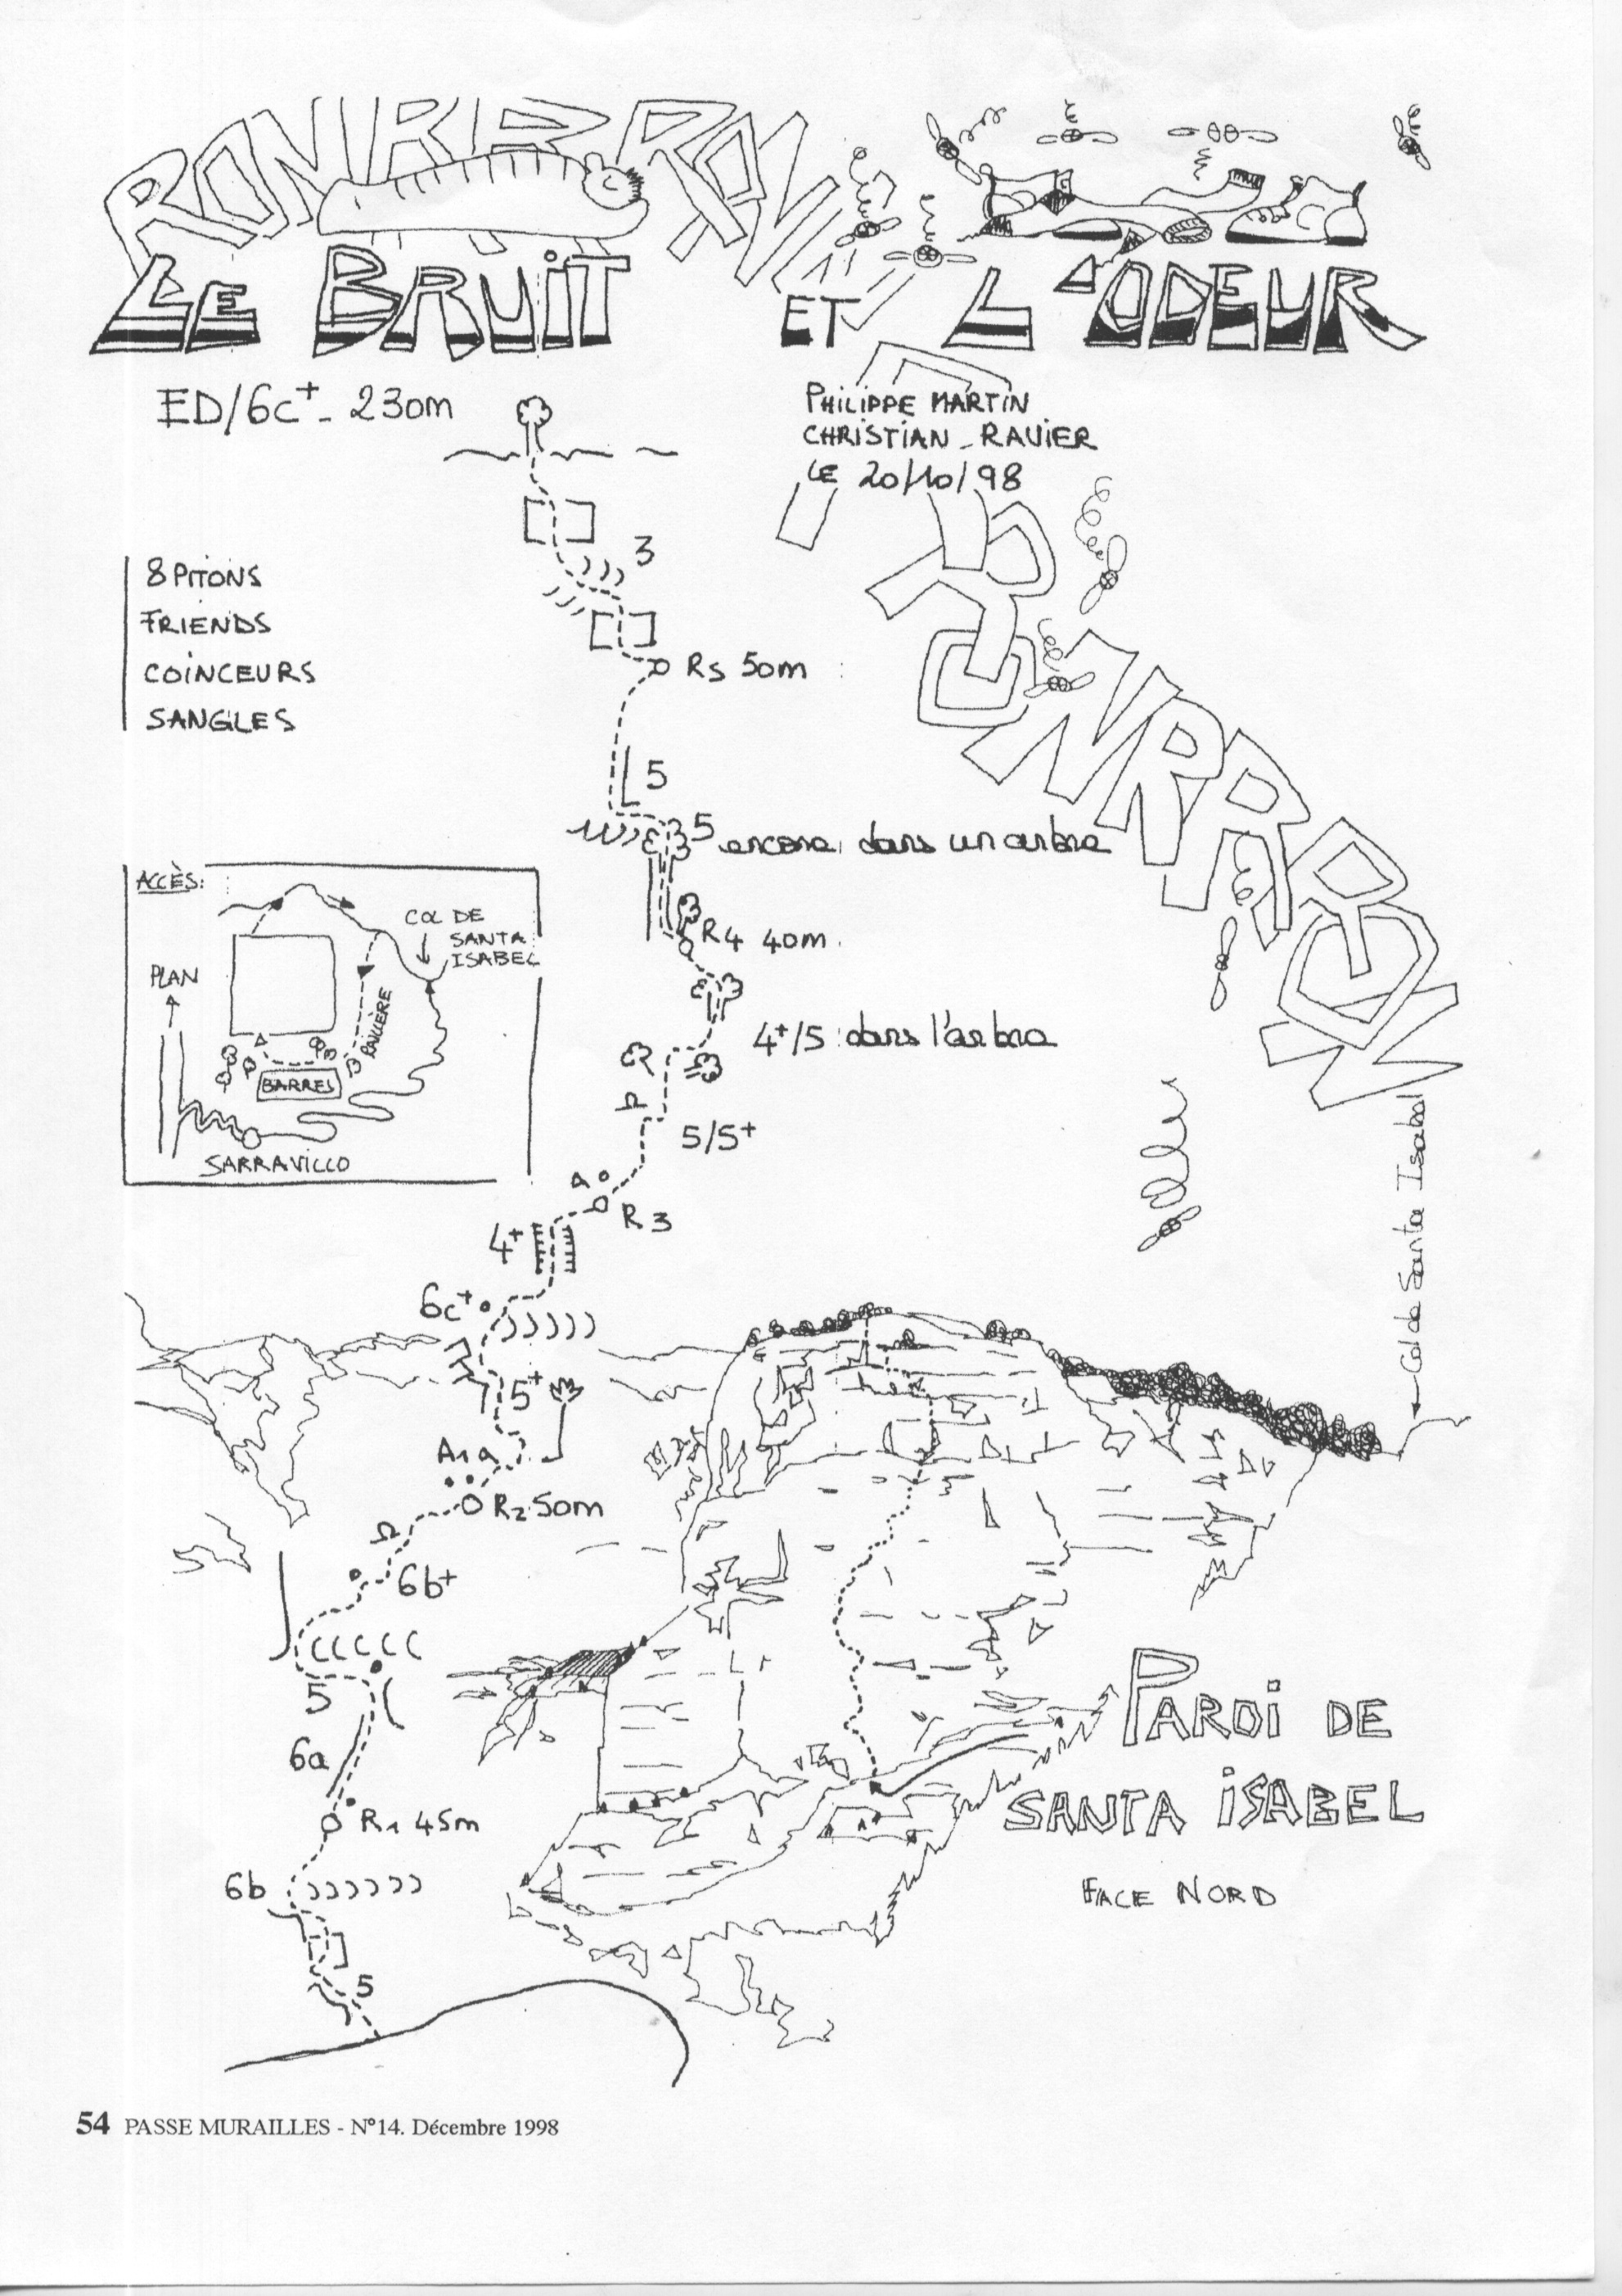 RONRRRON
LE BRUIT ET L'ODEUR
ED/6c+ - 230m
PHILIPPE MARTIN
CHRISTIAN - RAVIER
LE 20/10/98
RRONRRRON
8 PITONS
FRIENDS
COINCEURS
SANGLES
3
R5 50m
5
5 encore dans un arbre
R4 40m.
4+/5 dans l'arbre
5/5+
R3
4+
6c+
5+
A1a
R2 50m
6b+
5
6a
R1 45m
6b
5
ACCÈS:
COL DE
SANTA
ISABEL
PLAN
RIVIÈRE
BARRES
SARRAVILLO
Col de Santa Isabel
PAROI DE
SANTA ISABEL
FACE NORD
54 PASSE MURAILLES - N°14. Décembre 1998